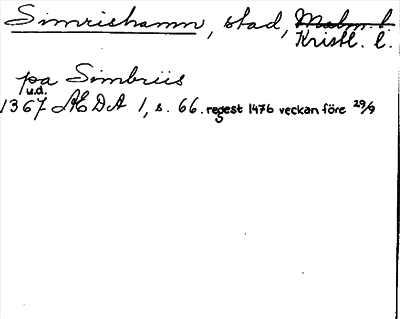 Simrishamn, stad, Malm. l.
Kristl. l.
pa Simbriis
u.d.
1367 ÆDA 1, s. 66. regest 1476 veckan före 29/9